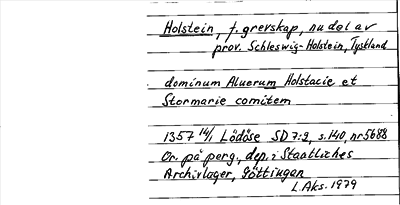 Holstein, f. grevskap, nu del av
prov. Schleswig-Holstein, Tyskland
dominum Aluerum Holstacie et
Stormarie comitem
1357 14/1 Lödöse SD 7:2, s. 140, nr 5688
Or. på perg, dep. i Staatliches
Archivlager, Göttingen
L.Aks. 1979